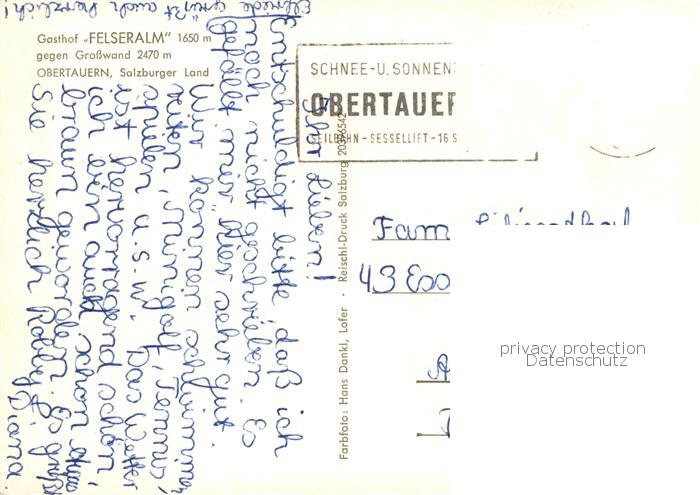 Gasthof „FELSERALM" 1650 m
gegen Großwand 2470 m
OBERTAUERN, Salzburger Land
SCHNEE-U. SONNEN
OBERTAUER
SEILBAHN - SESSELLIFT - 16 S
Ihr Lieben!
Entschuldigt bitte daß ich
noch nicht geschrieben. Es
gefällt mir hier sehr gut.
Wir können schwimmen,
reiten, Minigolf, Tennis,
spielen u.s.w. Das Wetter
ist hervorragend schön,
ich bin auch schon etwas
braun geworden. Es grüßt
Sie herzlich Robby & Diana
grüßt auch herzlich!
Farbfoto: Hans Dankl, Lofer · Reischl-Druck Salzburg 20376542
Fam
43 Ess
privacy protection
Datenschutz